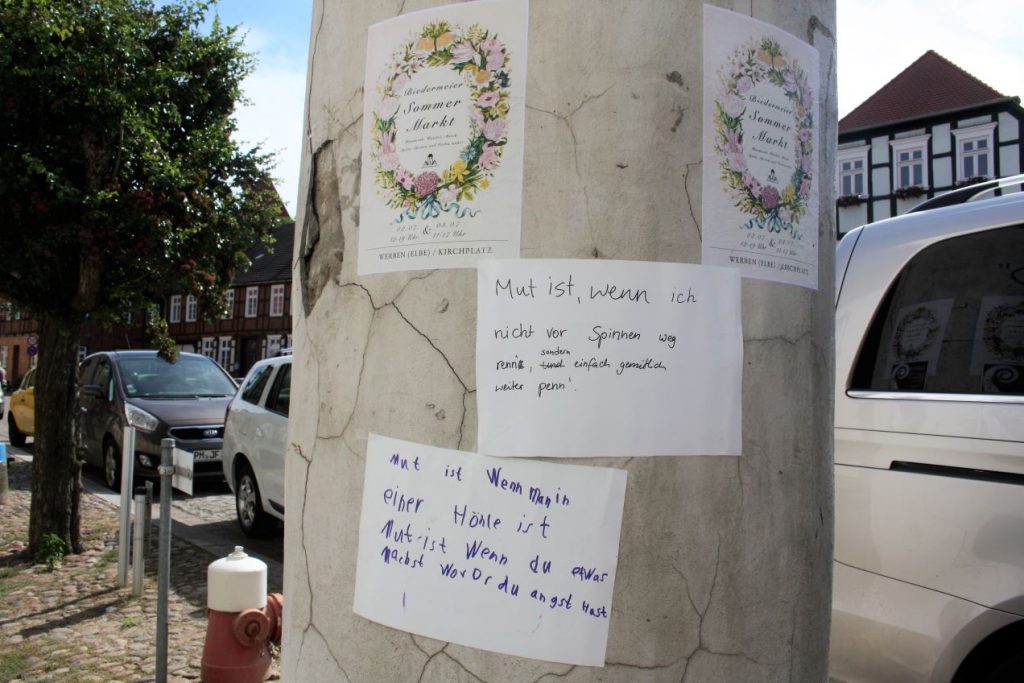 Biedermeier
Sommer
Markt
02.07. & 03.07.
12-19 Uhr 11-17 Uhr
WERBEN (ELBE) / KIRCHPLATZ
Biedermeier
Sommer
Markt
02.07. & 03.07.
12-19 Uhr 11-17 Uhr
WERBEN (ELBE) / KIRCHPLATZ
Mut ist, wenn ich
nicht vor Spinnen weg
renn, sondern einfach gemütlich
weiter penn'.
Mut ist Wenn man in
einer Höhle ist
Mut-ist Wenn du etwas
Machst wovor du angst Hast
!
PM JF